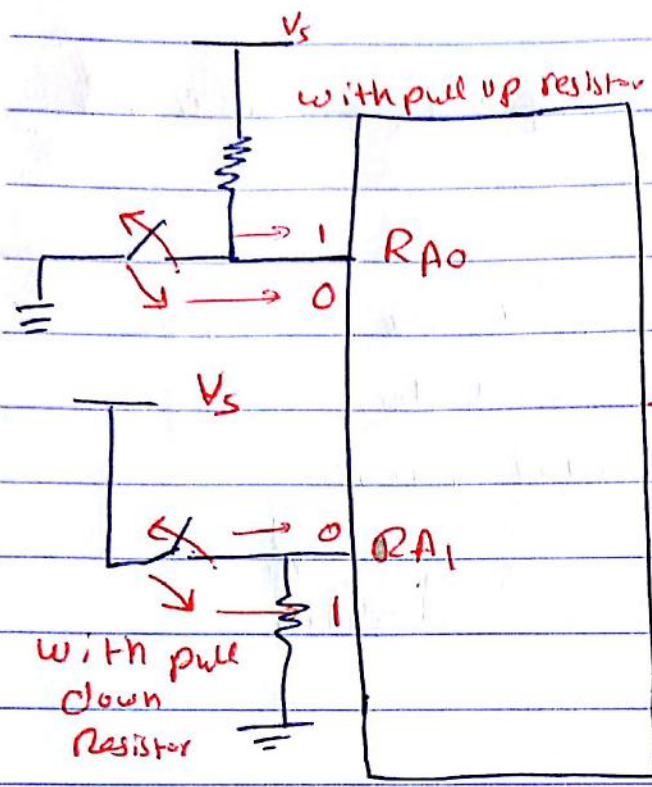 Vs
with pull up resistor
1
RA0
0
Vs
0
RA1
1
with pull
down
Resistor